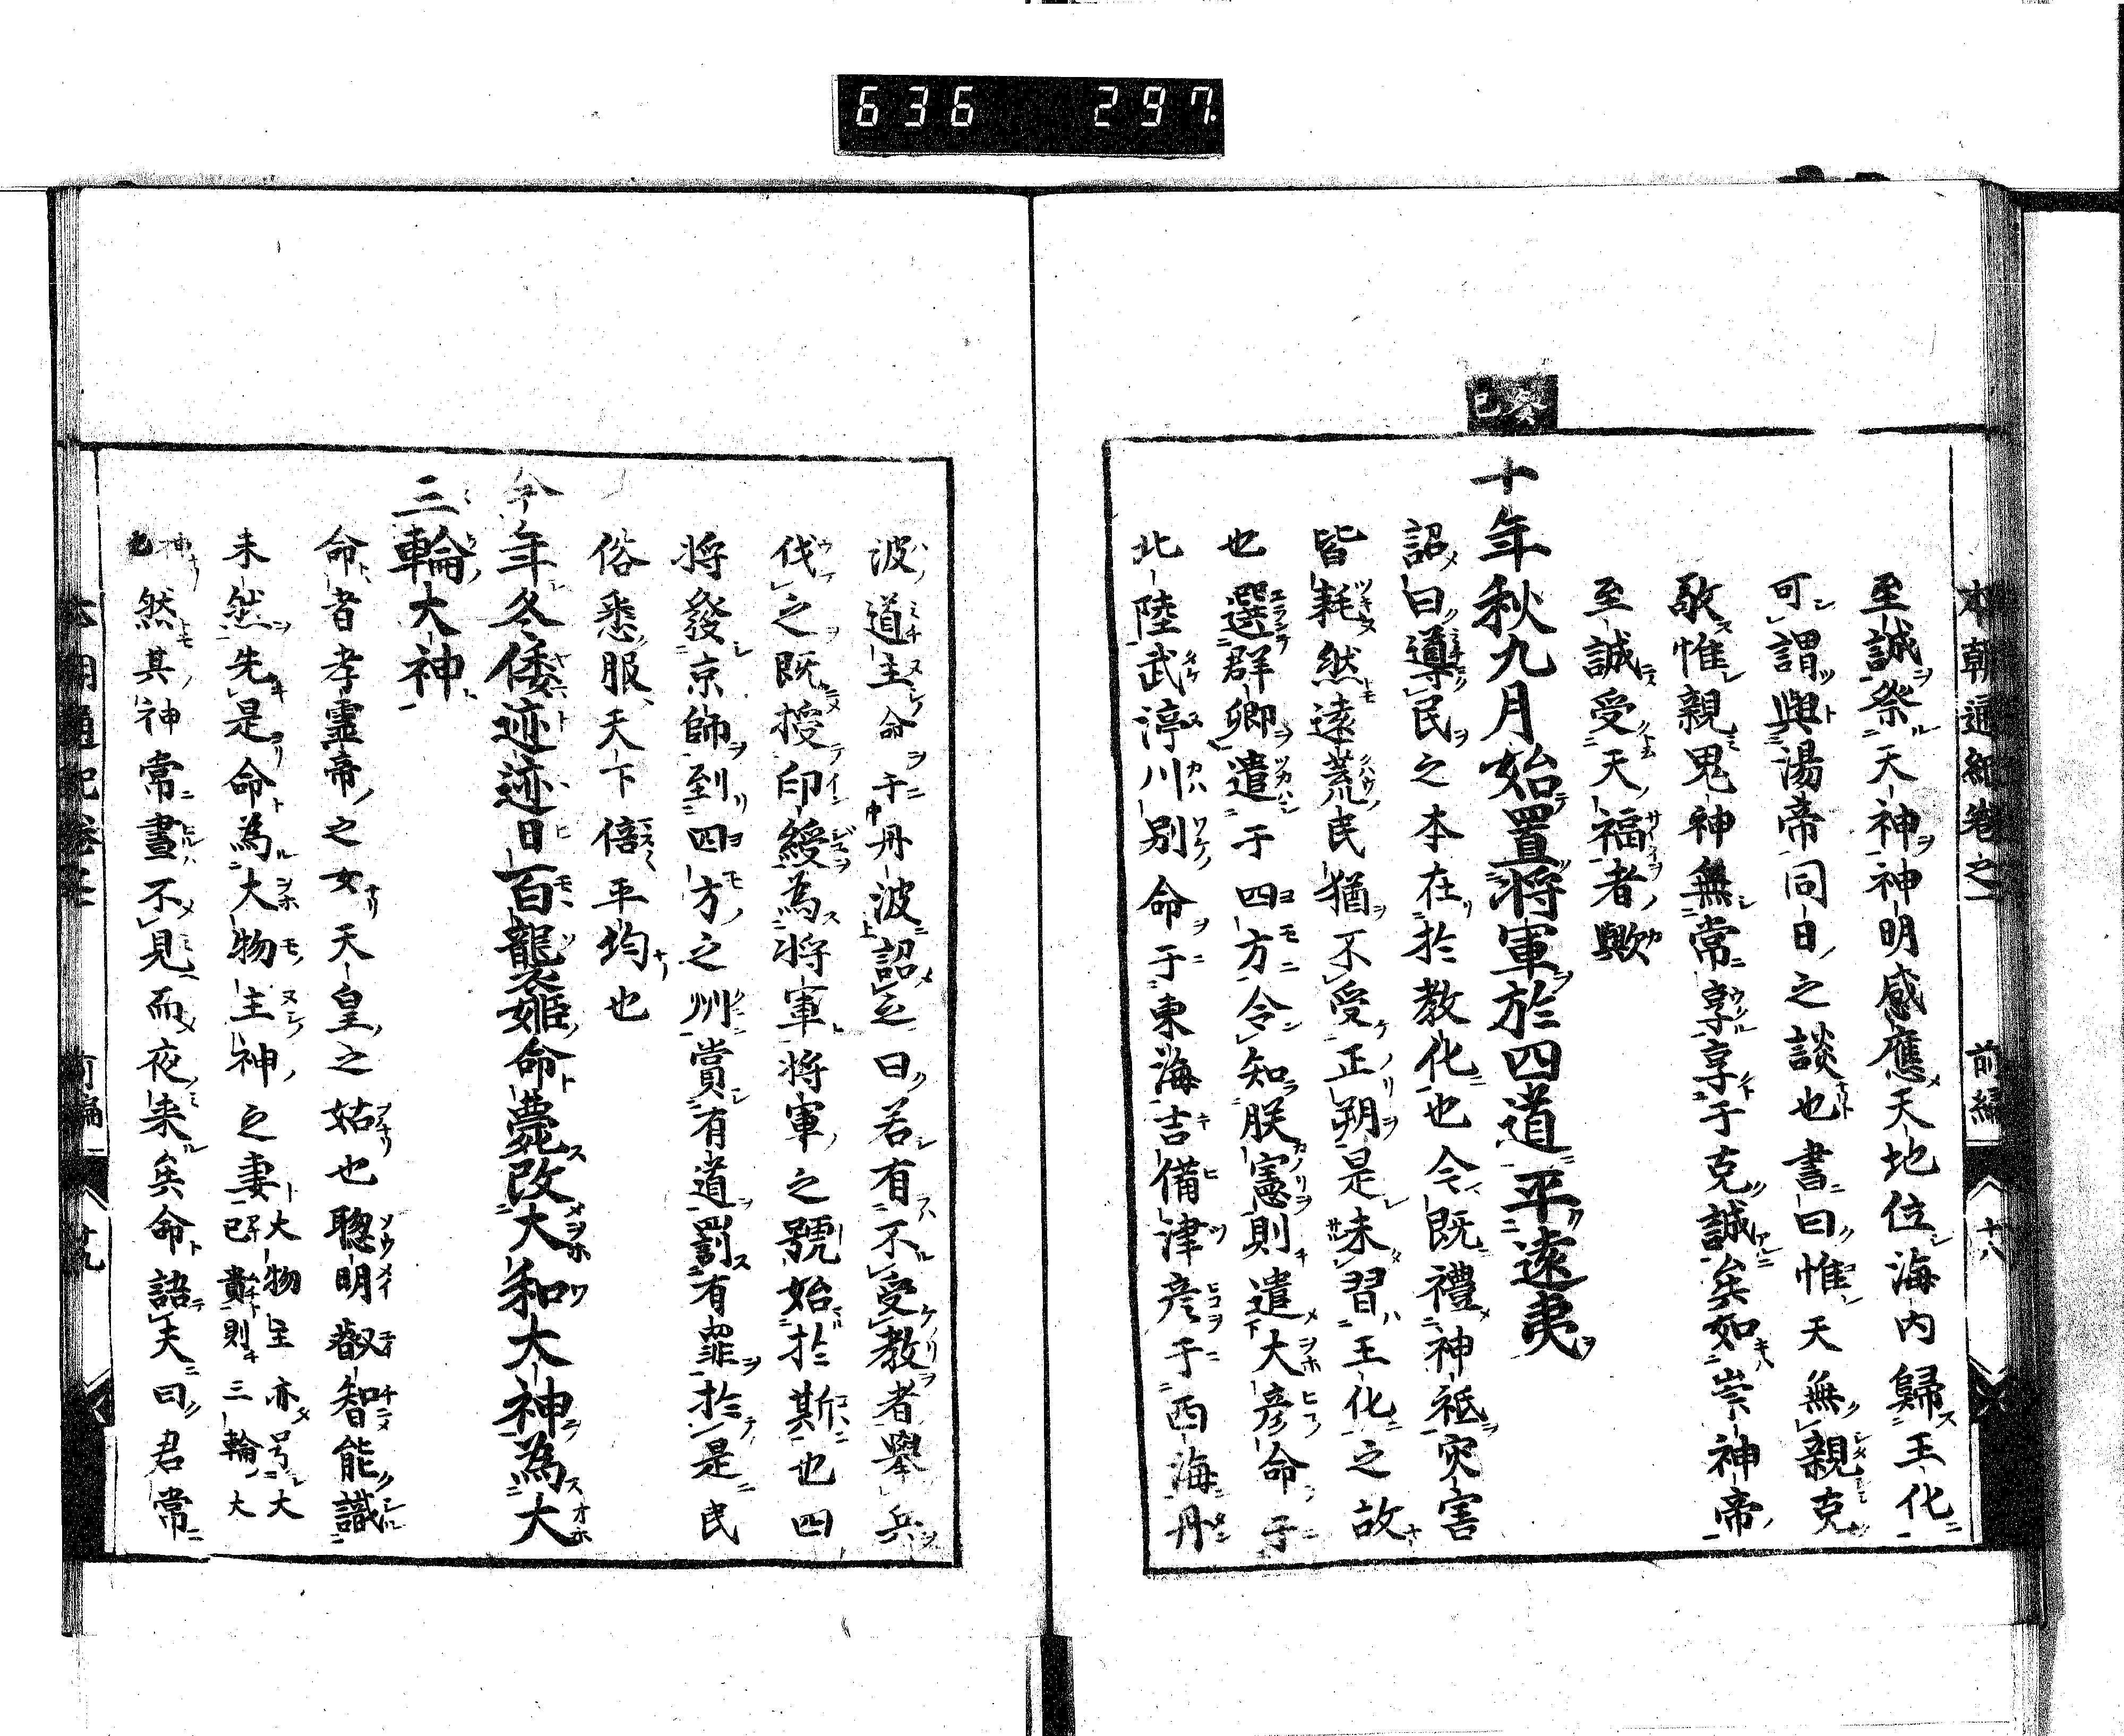 636 297.
本朝通紀卷之一 前編 十八
至誠祭天神神明感應天地位海内歸王化
可謂與湯帝同日之談也書曰惟天無親克
敬惟親鬼神無常享享于克誠矣如崇神帝
至誠受天福者歟
癸巳
十年秋九月始置將軍於四道平遠夷
詔曰導民之本在於教化也今既禮神祗灾害
皆耗然遠荒民猶不受正朔是未習王化之故
也選群卿遣于四方令知朕憲則遣大彦命于
北陸武渟川別命于東海吉備津彦于西海丹
波道主命于丹波詔之曰若有不受教者舉兵
伐之既授印綬為將軍將軍之號始於斯也四
將發京師到四方之州賞有道罰有罪於是民
俗悉服天下倍平均也
今年冬倭迹迹日百襲姫命薨改大和大神為大
三輪大神
命者孝霊帝之女天皇之姑也聰明叡智能識
未然先是命為大物主神之妻大物主亦号大
已貴則三輪大
神也然其神常晝不見而夜来矣命語夫曰君常
前編 十九